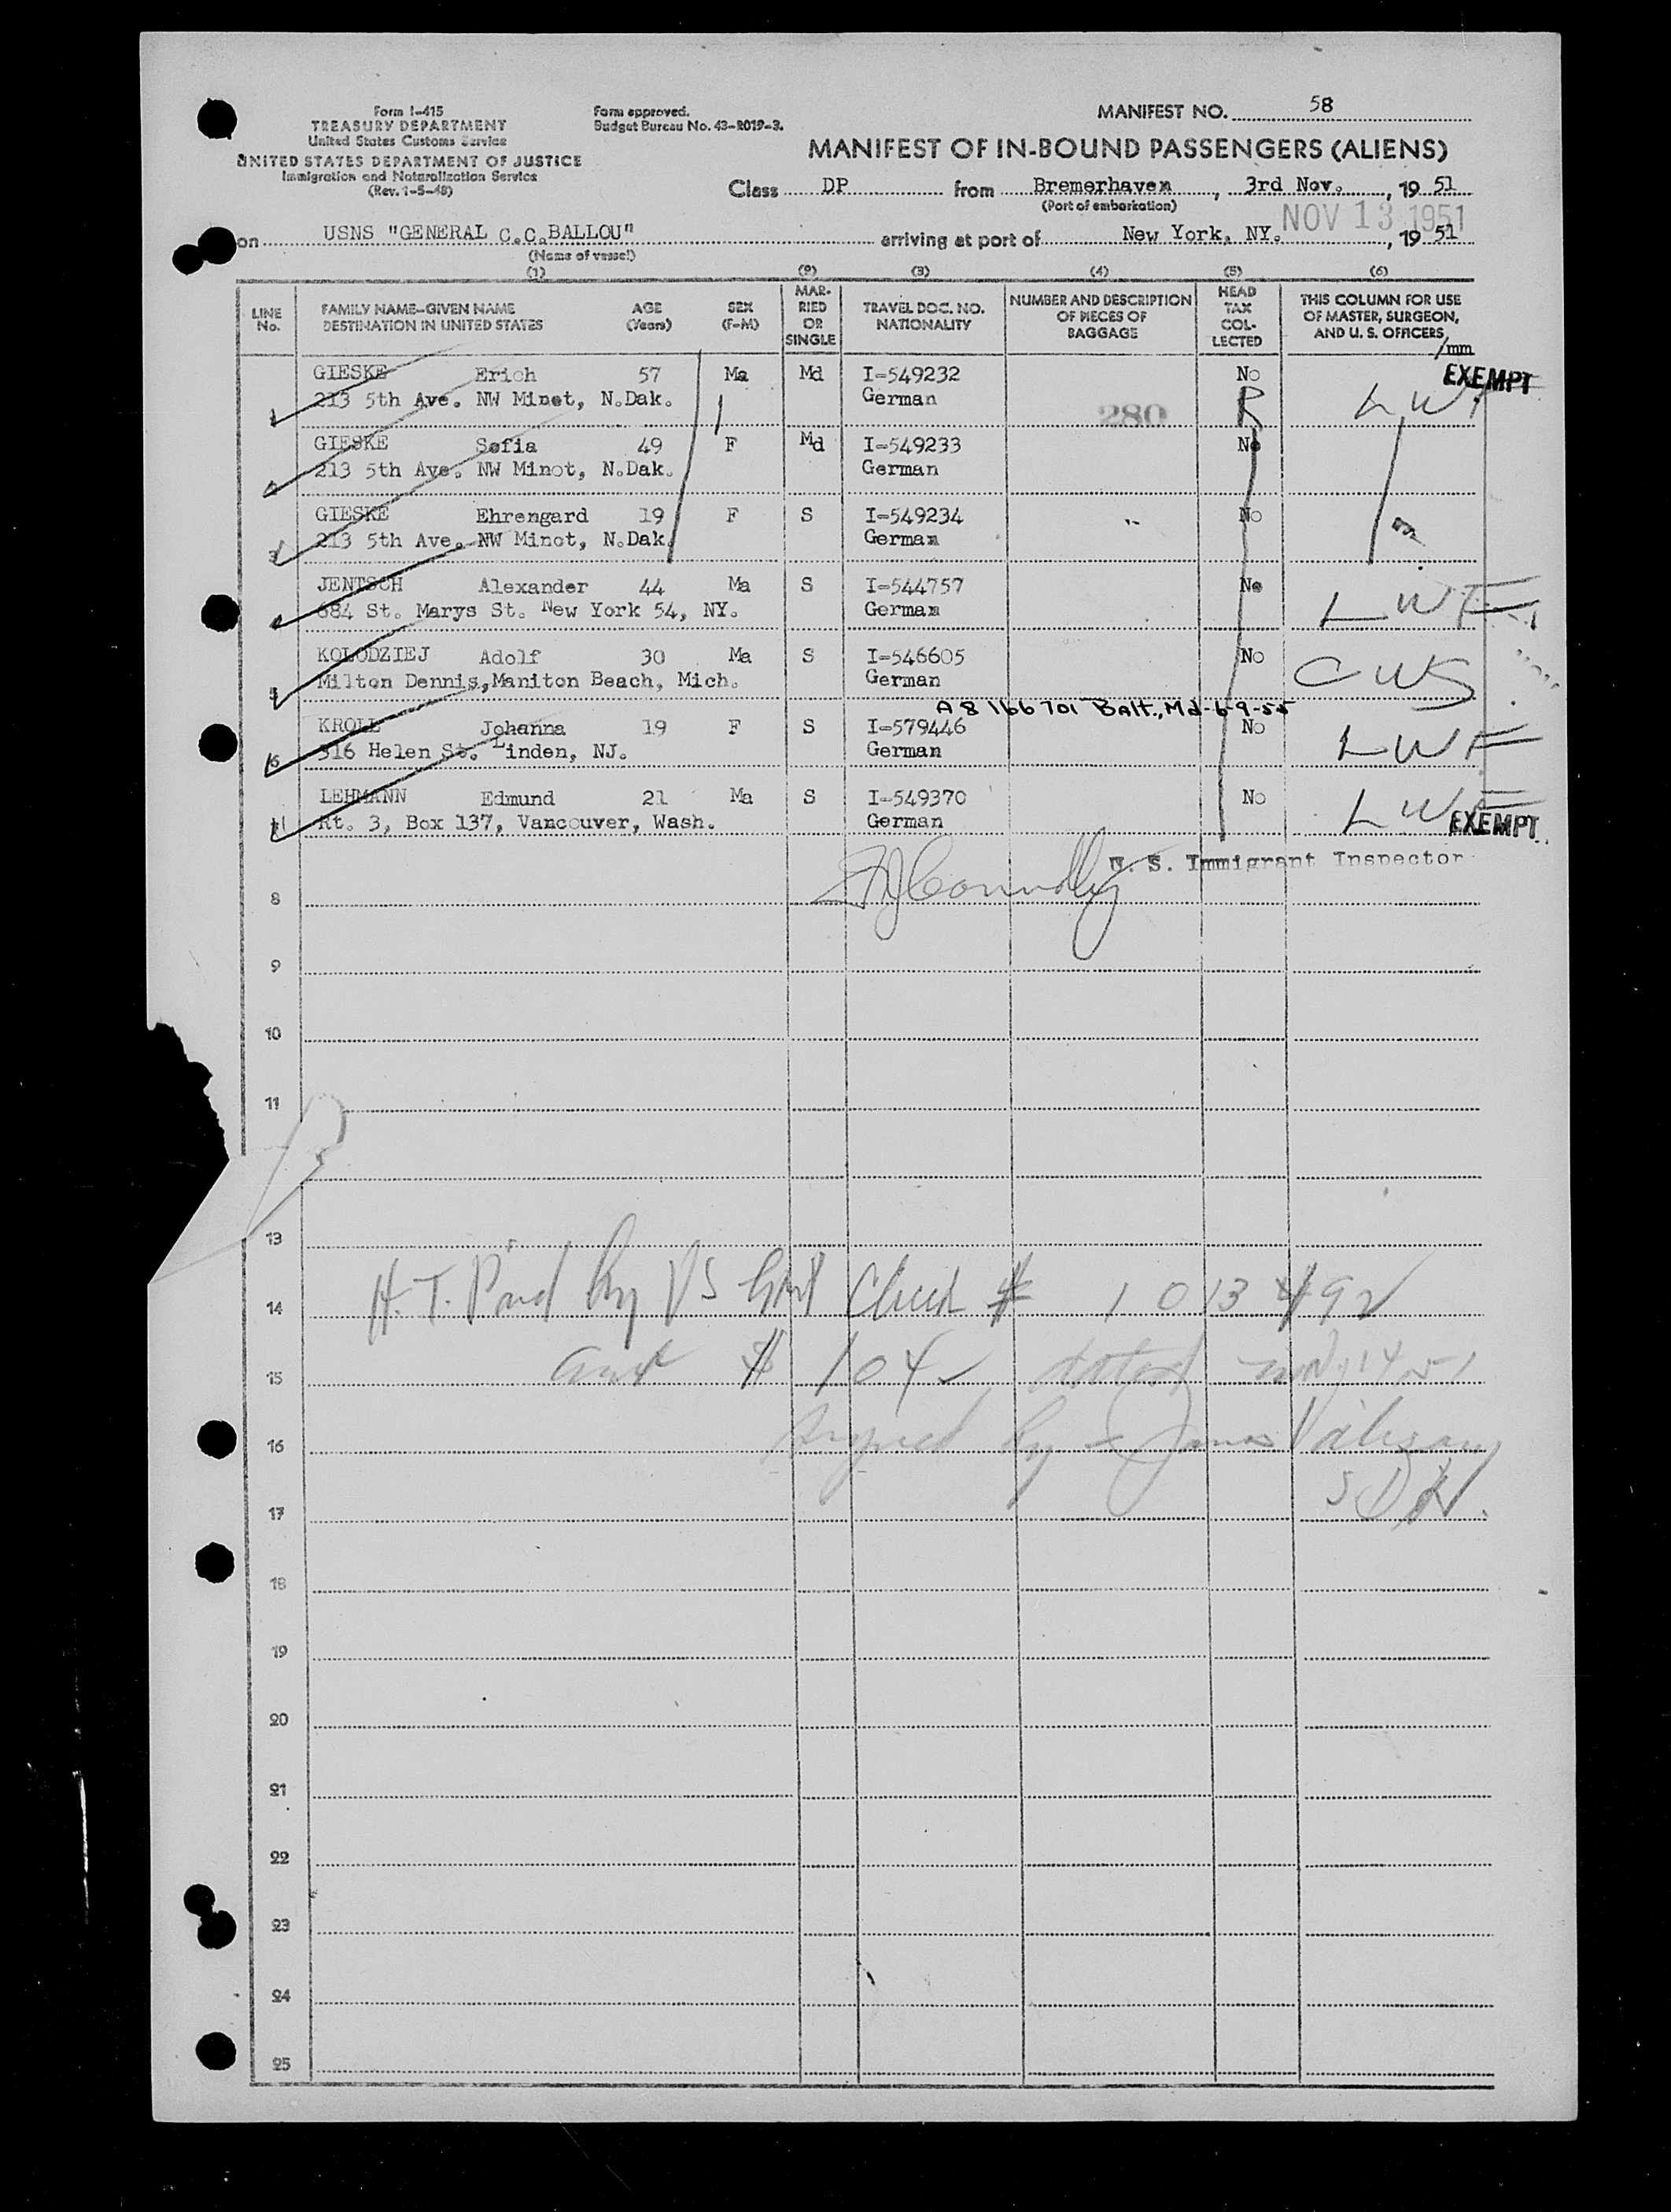 Form I-415
TREASURY DEPARTMENT
United States Customs Service
UNITED STATES DEPARTMENT OF JUSTICE
Immigration and Naturalization Service
(Rev. 1-5-48)
Form approved.
Budget Bureau No. 43-R019-3.
MANIFEST NO. 58
MANIFEST OF IN-BOUND PASSENGERS (ALIENS)
Class DP from Bremerhaven, 3rd Nov., 19 51
(Port of embarkation)
NOV 13 1951
on USNS "GENERAL C.C.BALLOU" arriving at port of New York, NY. , 19 51
(Name of vessel)
(1) (2) (3) (4) (5) (6)
LINE No.
FAMILY NAME-GIVEN NAME
DESTINATION IN UNITED STATES
AGE (Years)
SEX (F-M)
MARRIED OR SINGLE
TRAVEL DOC. NO.
NATIONALITY
NUMBER AND DESCRIPTION
OF PIECES OF
BAGGAGE
HEAD TAX COLLECTED
THIS COLUMN FOR USE
OF MASTER, SURGEON,
AND U. S. OFFICERS
/mm
GIESKE Erich 57 Ma Md I-549232 No EXEMPT
1 213 5th Ave. NW Minot, N.Dak. German 280 R LWF
GIESKE Sofia 49 F Md I-549233 No
2 213 5th Ave. NW Minot, N.Dak. German
GIESKE Ehrengard 19 F S I-549234 No
3 213 5th Ave. NW Minot, N.Dak. German
JENTSCH Alexander 44 Ma S I-544757 No
4 684 St. Marys St. New York 54, NY. German LWF
KOLODZIEJ Adolf 30 Ma S I-546605 No
5 Milton Dennis, Maniton Beach, Mich. German CWS
A 8 166 701 Balt., Md-6-9-55
KROLL Johanna 19 F S I-579446 No
6 316 Helen St. Linden, NJ. German LWF
LEHMANN Edmund 21 Ma S I-549370 No
7 Rt. 3, Box 137, Vancouver, Wash. German LWF EXEMPT
U. S. Immigrant Inspector
8
9
10
11
13
H. T. Paid by US Gmt Check # 1013492
14
amt $ 104 dated Nov 14 51
15
Signed by James
16
17
18
19
20
21
22
23
24
25